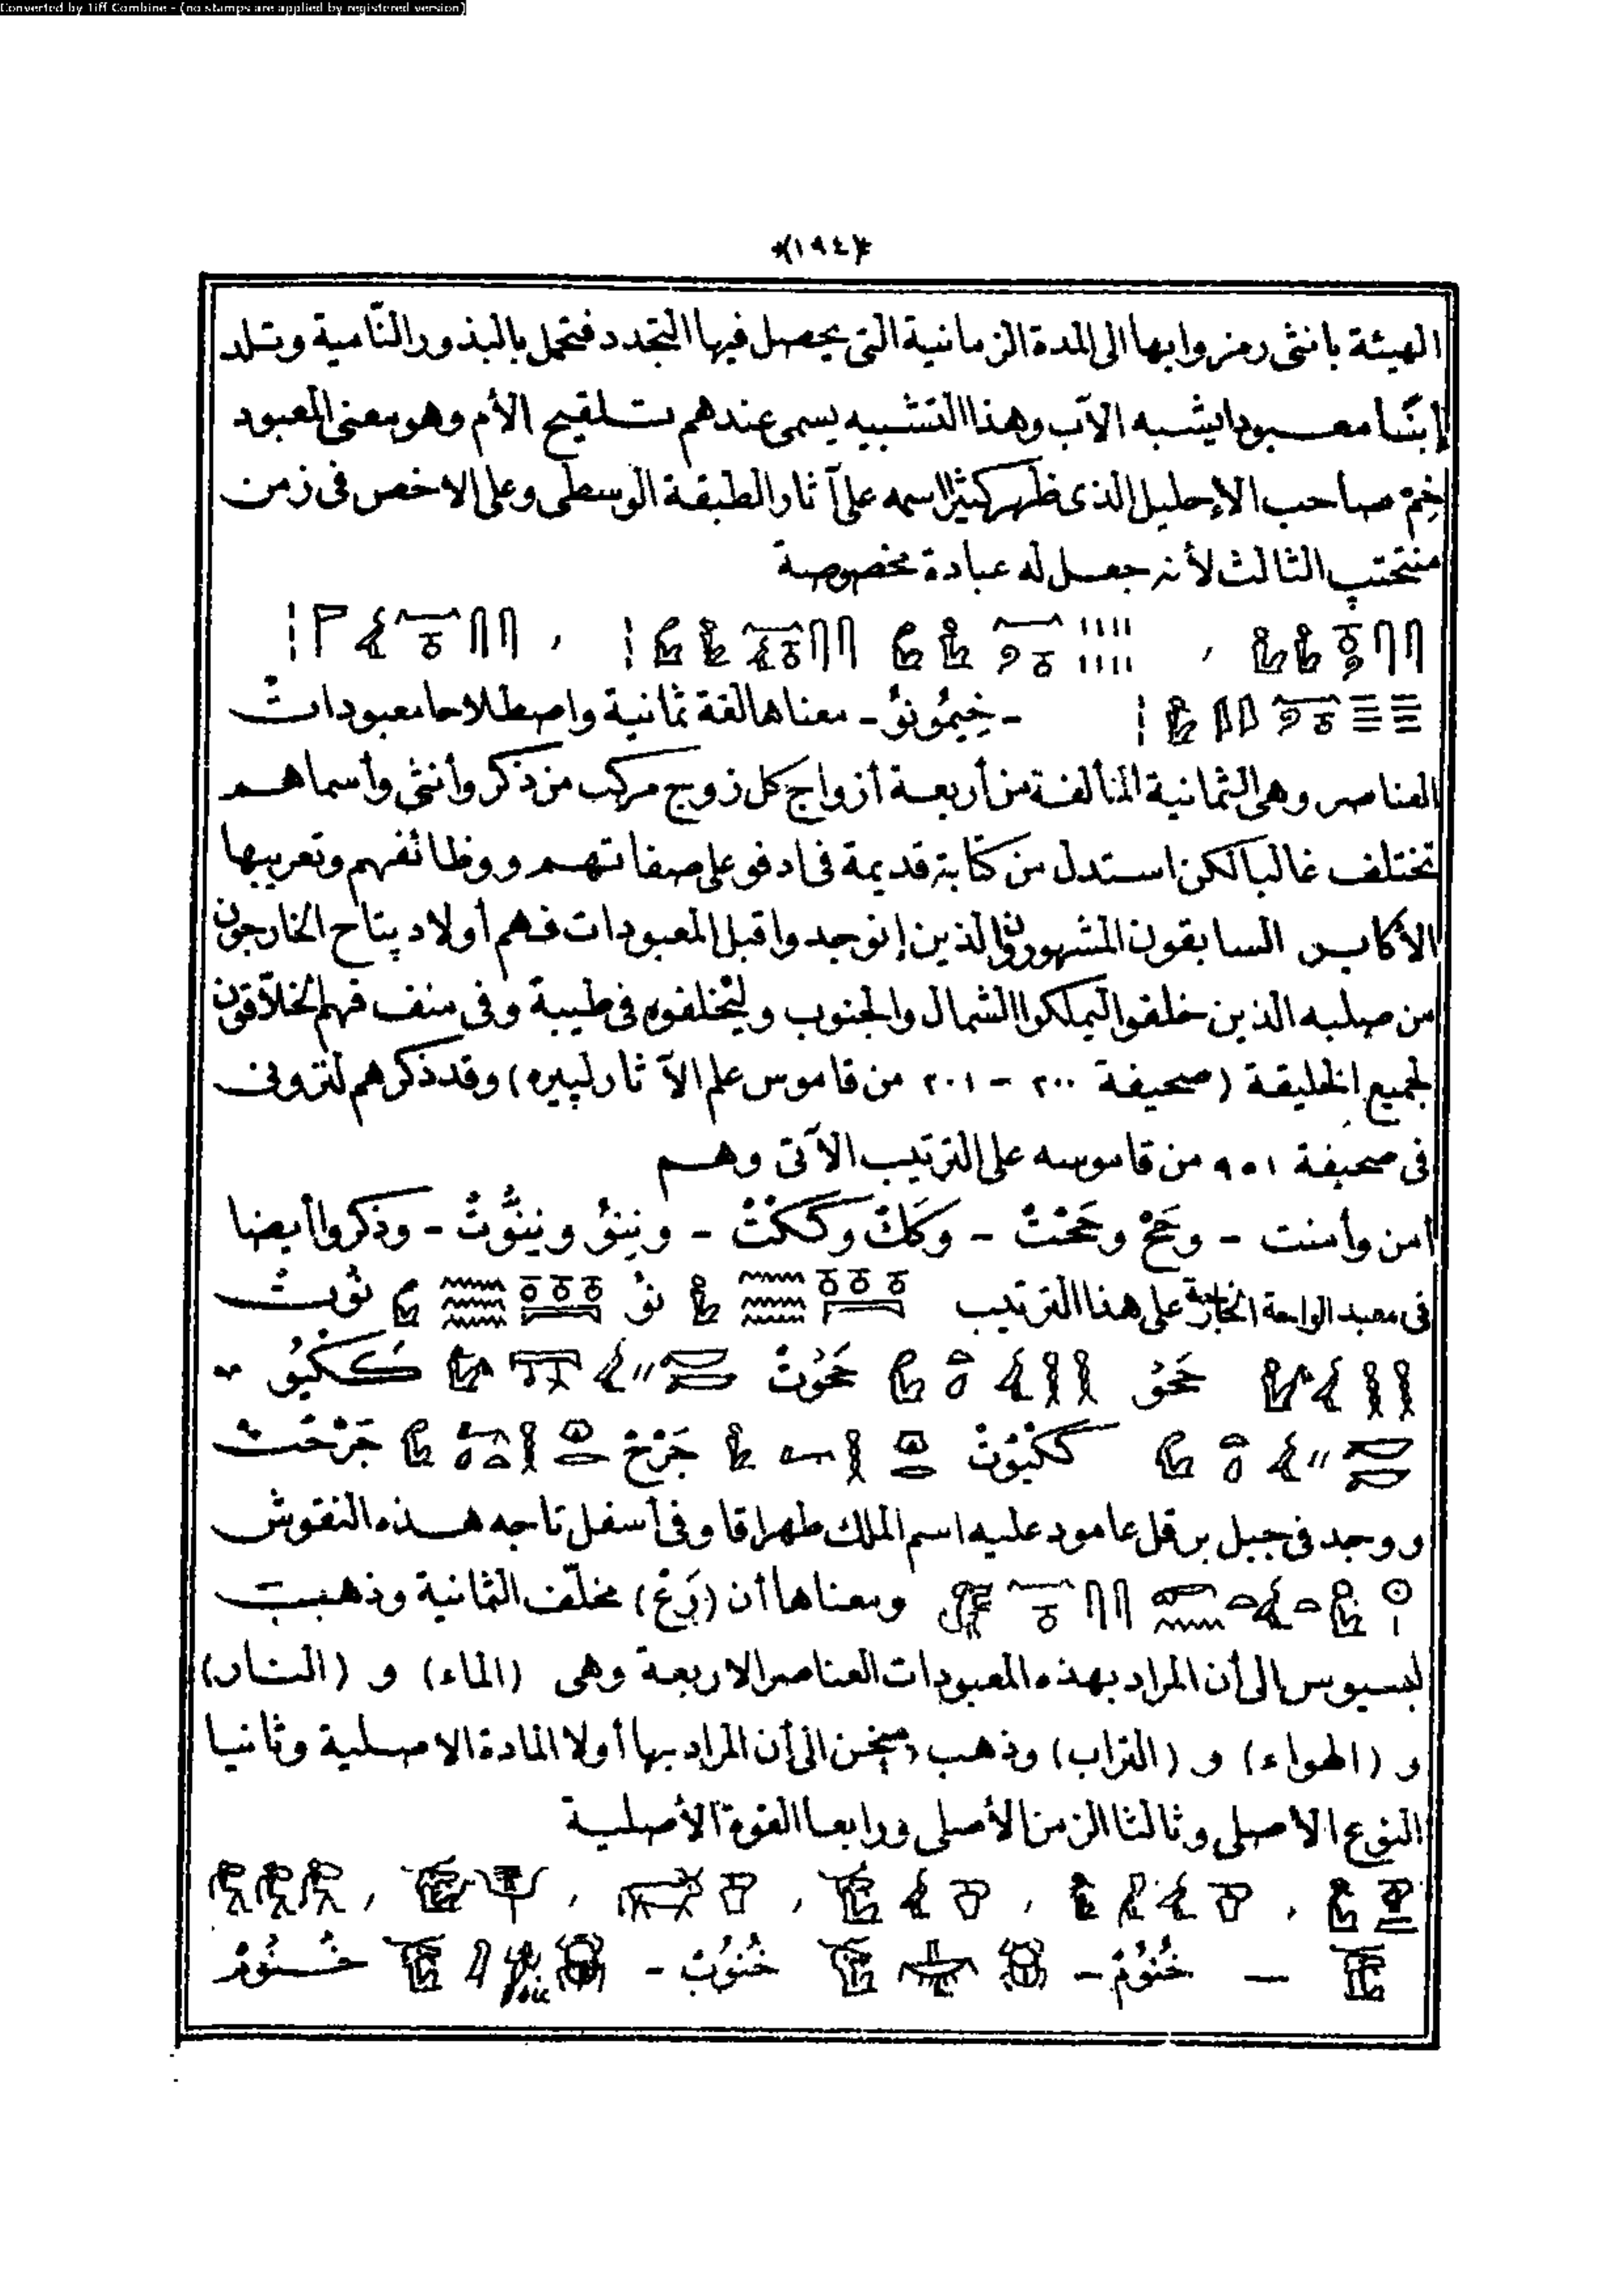 Converted by Tiff Combine - (no stamps are applied by registered version)
*(١٩٤)*
الهيئة بانثى رمزوا بها الى المدة الزمانية التى يحصل فيها التجدد فتحمل بالبذور النامية وتلد
إبنًا معبودا يشبه الآب وهذا التشبيه يسمى عندهم تلقيح الأم وهو معنى المعبود
خِمْ صاحب الإحليل الذى ظهر كثيرا اسمه على آثار الطبقة الوسطى وعلى الاخص فى زمن
منتحتب الثالث لأنه جعل له عبادة مخصوصة
- خِيمُونوُ - معناها لغة ثمانية واصطلاحا معبودات
العناصر وهى الثمانية المتألفة من أربعة أزواج كل زوج مركب من ذكر وأنثى وأسماهم
تختلف غالبا لكن استدل من كتابة قديمة فى ادفو على صفاتهم ووظائفهم وتعريبها
الأكابر السابقون المشهورون الذين إنوجدوا قبل المعبودات فهم أولاد پتاح الخارجون
من صلبه الذين خلقوا ليملكوا الشمال والجنوب وليخلفوه فى طيبة وفى منف فهم الخلاقون
لجميع الخليقة (صحيفة ٢٠٠ - ٢٠١ من قاموس علم الآثار لپيره) وقد ذكرهم لنزونى
فى صحيفة ٩٥١ من قاموسه على الترتيب الآتى وهم
امن وأمنت - وحَحْ وحَحْتْ - وكَكْ وكَكْتْ - ونِينوُ ونِينُوتْ - وذكروا أيضا
فى معبد الواحة الخارجة على هذا الترتيب نوُ نوُتْ
حَحوُ حَحوُتْ كَكْيوُ -
كَكْيوُتْ جَرْحْ جَرْحَتْ
ووجد فى جبيل برقل عامود عليه اسم الملك طهراقا وفى أسفل تاجه هذه النقوش
ومعناها أن (رَعْ) مخلّف الثمانية وذهبت
لبسيوس الى أن المراد بهذه المعبودات العناصر الاربعة وهى (الماء) و (النار)
و (الهواء) و (التراب) وذهب الى أن المراد بها أولا المادة الاصلية وثانيا
النوع الاصلى وثالثا الزمن الأصلى ورابعا القوة الأصلية
— خُنُومْ - خُنُوبْ - خُنُومْ